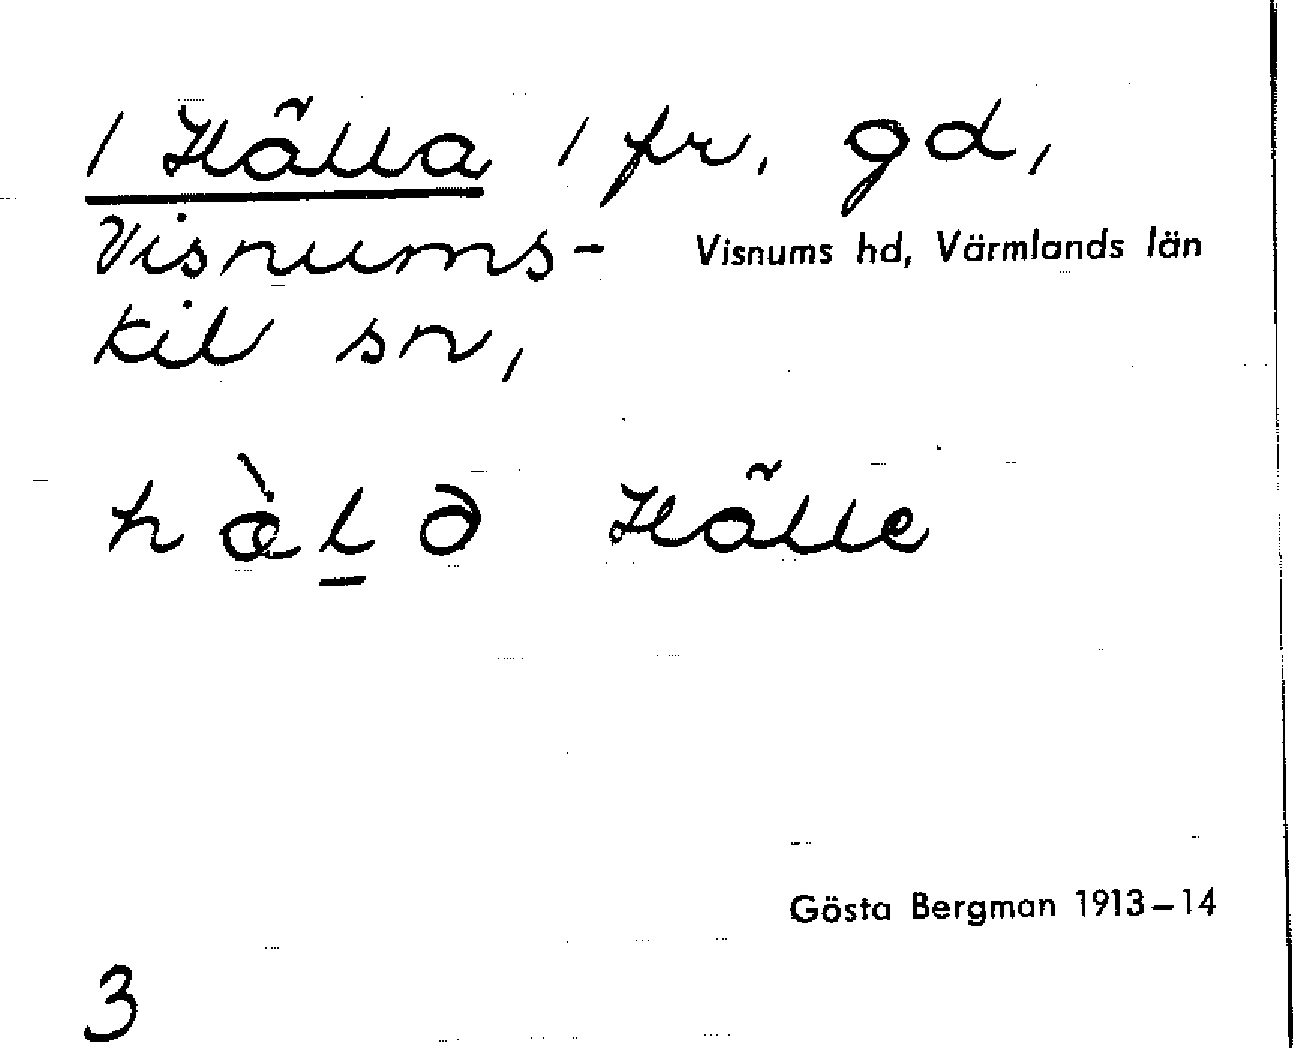 / Hälla / fr. gd,
Visnums- Visnums hd, Värmlands län
kil sn,
hæ̀l̲ə Hälle
Gösta Bergman 1913–14
3